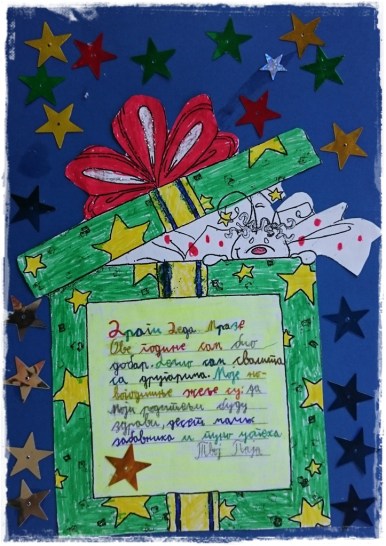 Драги Деда Мразе
Ове године сам био
добар. Делио сам свашта
са другарима. Моје но-
вогодишње жеље су: да
моји родитељи буду
здрави, десет малих
забавника и пуно успеха
Твој Паја